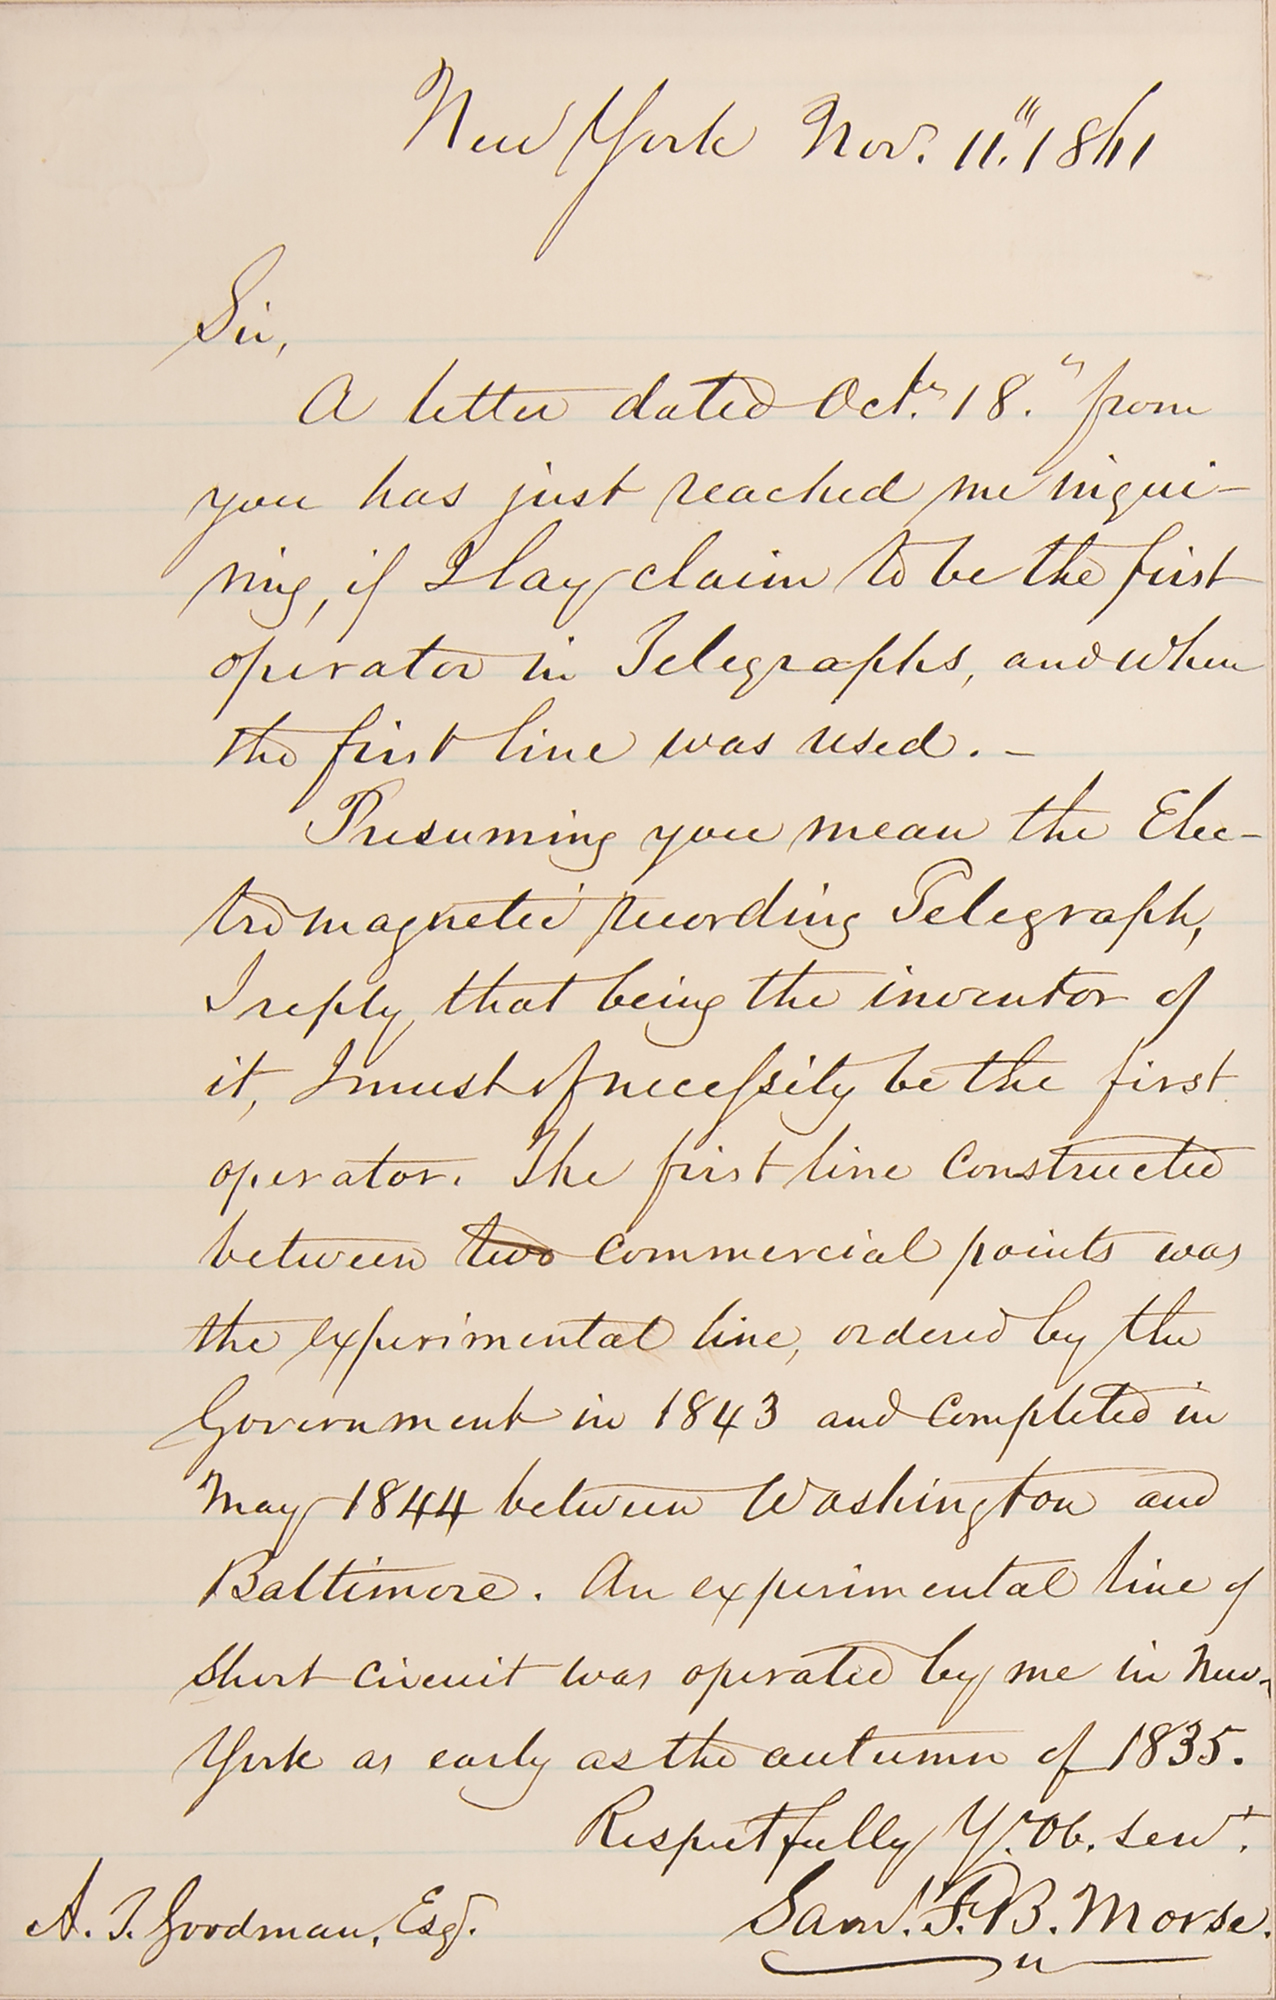 New York Nov. 11. 1861
Sir,
A letter dated Oct. 18. from
you has just reached me inqui-
ring, if I lay claim to be the first
operator in Telegraphs, and when
the first line was used. –
Presuming you mean the Elec-
tromagnetic recording Telegraph,
I reply, that being the inventor of
it, I must of necessity be the first
operator. The first line constructed
between two commercial points was
the experimental line, ordered by the
Government in 1843 and completed in
May 1844 between Washington and
Baltimore. An experimental line of
short circuit was operated by me in New-
York as early as the autumn of 1835.
Respectfully Yr. Ob. servt.
A. T. Goodman, Esqr. Saml. F. B. Morse.